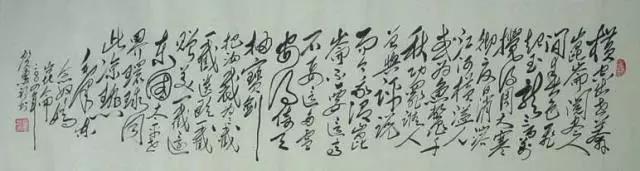 横空出世莽
崑崙阅尽人
间春色飞
起玉龙三百万
搅得周天寒
彻夏日消溶
江河横溢人
或为鱼鳖千
秋功罪谁人
曾与评说
而今我谓崑
崙不要这高
不要这多雪
安得倚天
抽宝剑
把汝裁为三截
一截遗欧一截
赠美一截还
东国太平世
界环球同
此凉热
毛泽东
念奴娇
崑崙